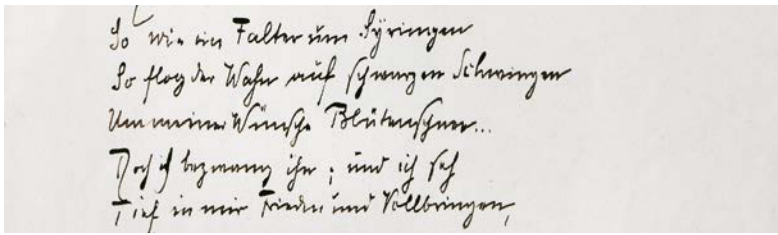 So wie ein Falter um Syringen
So flog der Wahn auf schwarzen Schwingen
Um meiner Wünsche Blütenschnee...
Doch ich bezwang ihn; und ich seh
Tief in mir Frieden und Vollbringen,